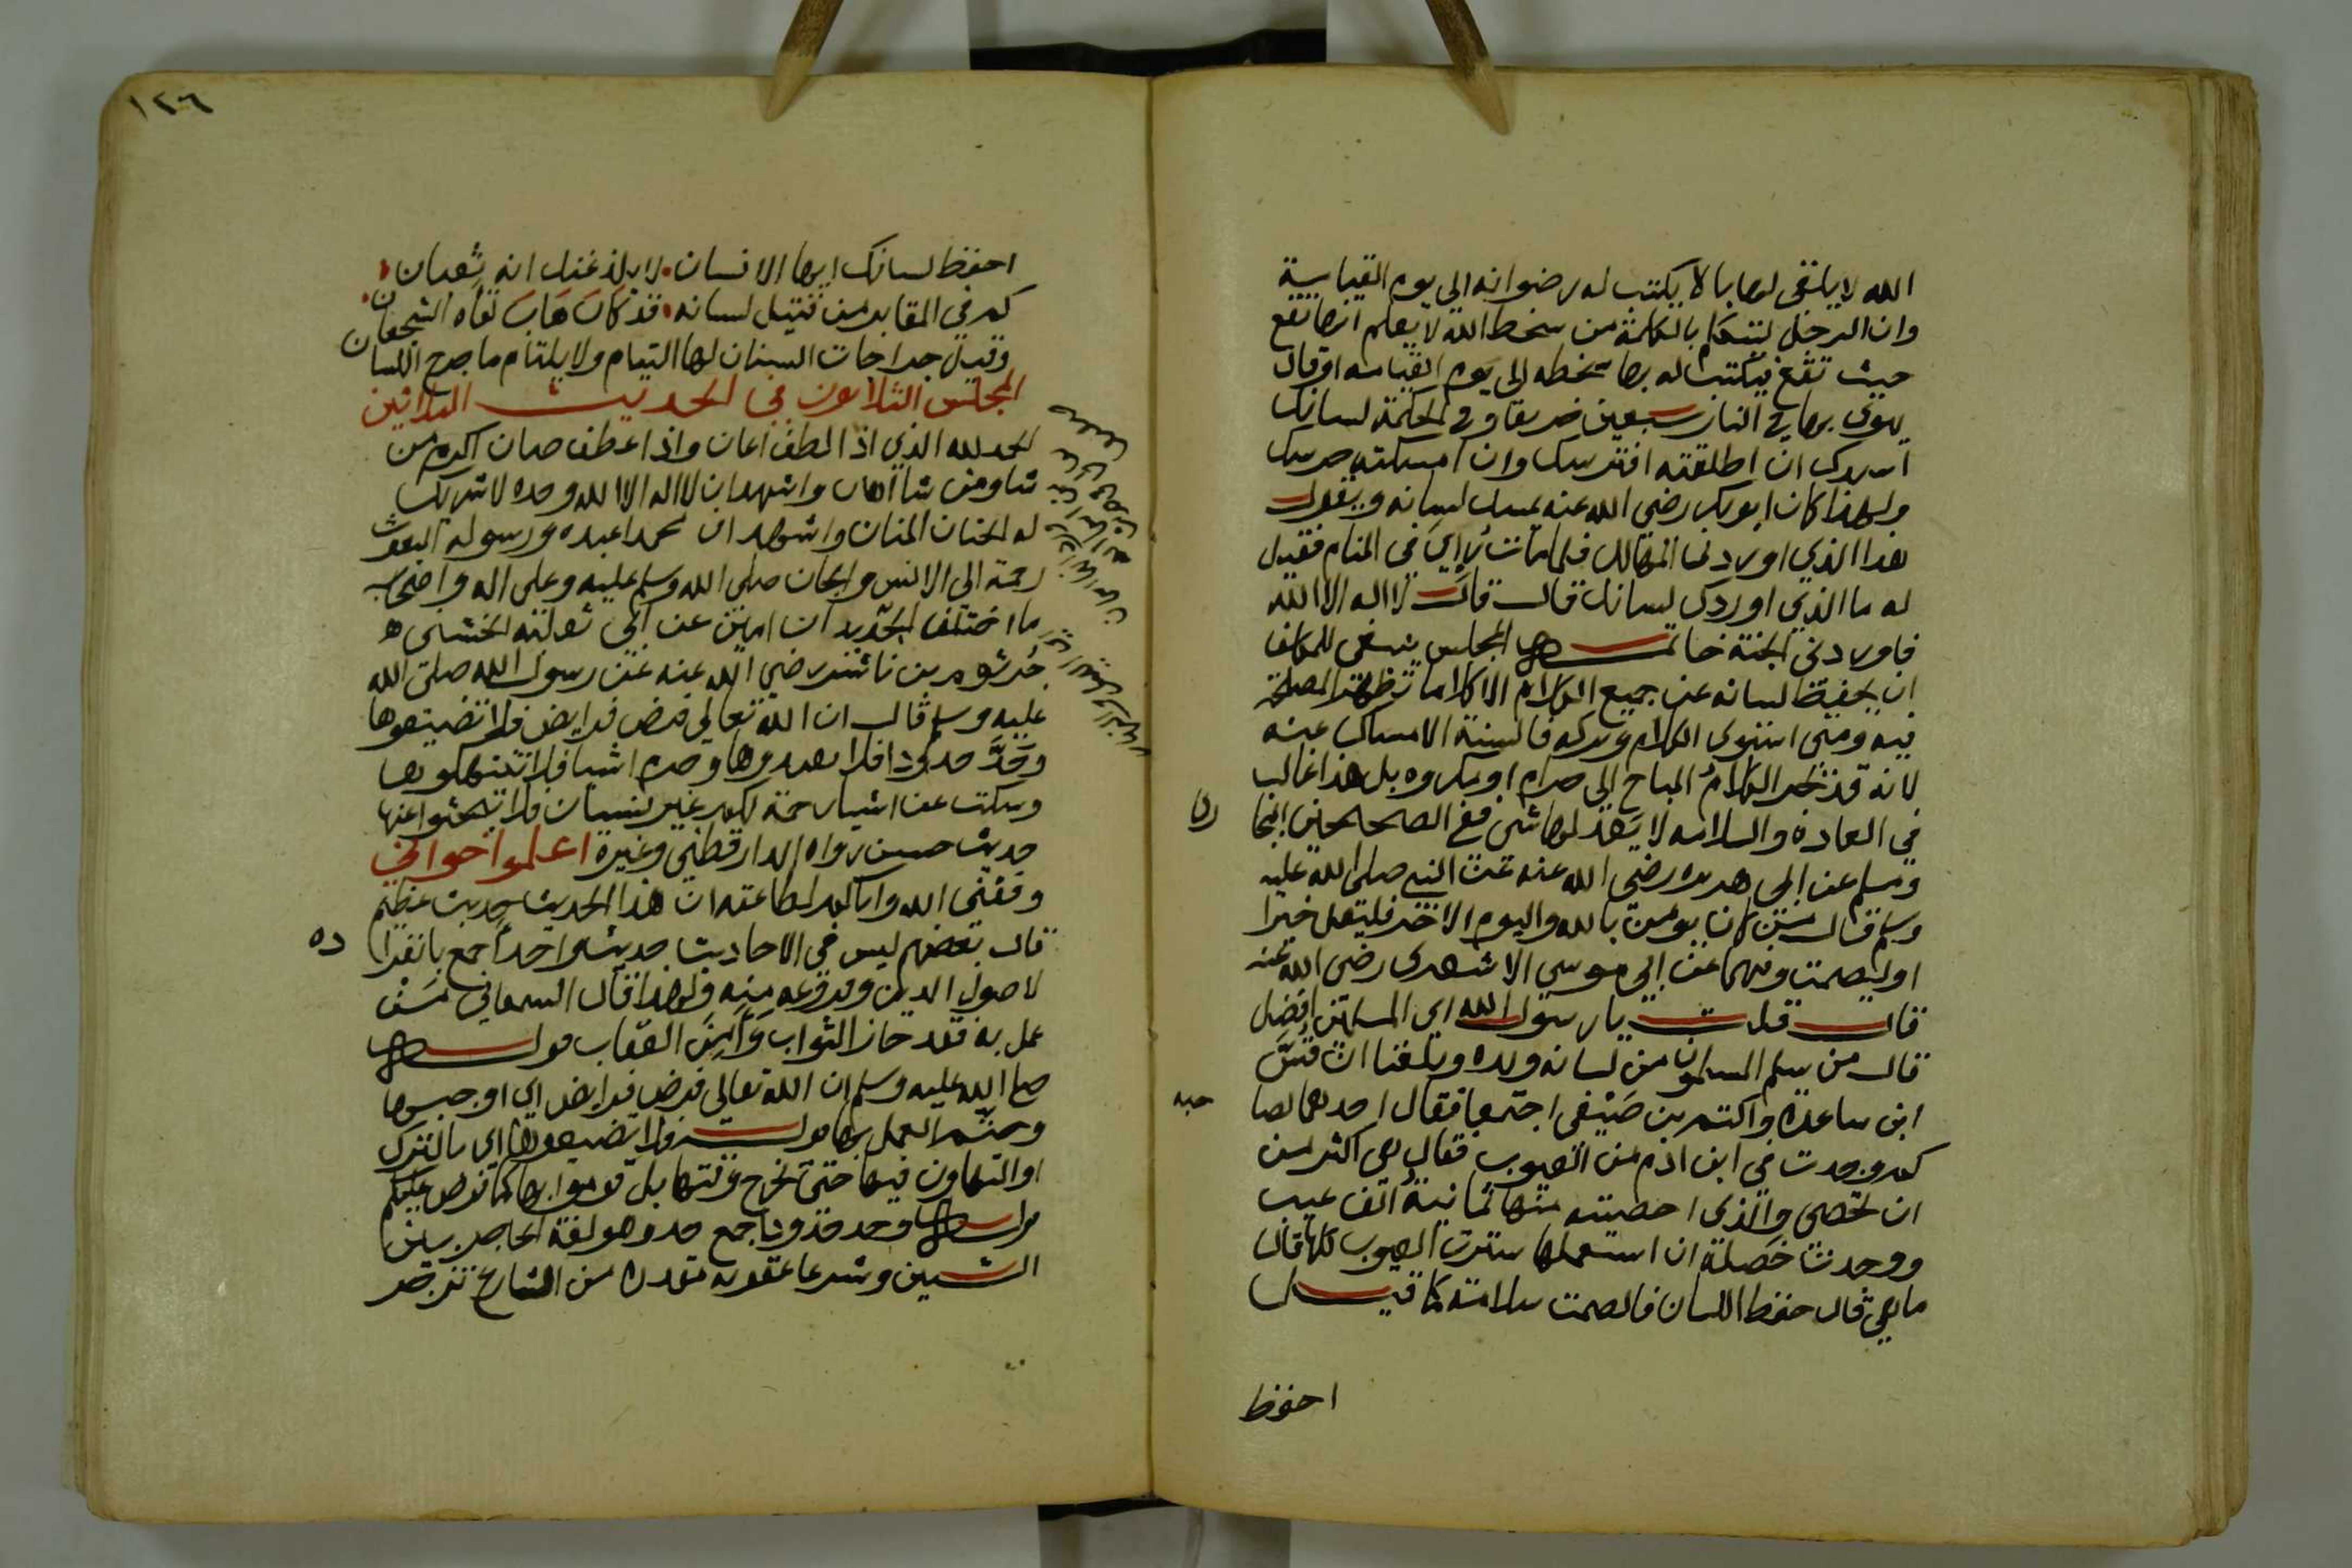 الله لا يلقى لها بالا يكتب له رضوانه الى يوم القيامة
وان الرجل ليتكلم بالكلمة من سخط الله لا يعلم انها تقع
حيث تقع يكتب له بها سخطه الى يوم القيامه او قال
يهوى بها في النار سبعين خريفا وفي الحكمة لسانك
اسدك ان اطلقته افترسك وان امسكته حرسك
ولهذا كان ابو بكر رضي الله عنه يمسك لسانه ويقول
هذا الذي اوردنى المهالك فلما مات رُاِيَ في المنام فقيل
له ما الذي اوردك لسانك قال قال لا اله الا الله
فاوردنى الجنة خاتمة المجلس ينبغى للمكلف
ان يحفظ لسانه عن جميع الكلام الا كلاما تظهر المصلحة
فيه ومتى استوى الكلام وتركه فالسنة الامساك عنه
لانه قد يجر الكلامُ المباح الى حرام او مكروه بل هذا غالب
في العادة والسلامه لا يعدلها شى ففى الصحيحين البخا
رى
ومسلم عن ابى هريره رضي الله عنه عن النبي صلى الله عليه
وسلم قال من كان يومن بالله واليوم الاخر فليقل خيرا
او ليصمت وفيهما عن ابي موسي الاشعرى رضى الله عنه
قال قلت يا رسول الله اي المسلمين افضل
قال من سلم المسلمون من لسانه ويده وبلغنا ان قُسَّ
ابن ساعدة واكثم بن صَيْفى اجتمعا فقال احدهما لصا
حبه
كم وجدت في ابن ادم من العيوب فقال هي اكثر من
ان تحصى والذى احصيته منها ثمانية الف عيب
ووجدت خصلة ان استعملها سترت العيوب كلها قال
ما هي قال حفظ اللسان فالصمت سلامته كما قيل
احفظ
١٢٦
احفظ لسانك ايها الانسان لا يلدغنك انه ثعبان
كم في المقابر من قتيل لسانه قد كان هاب لقاه الشجعان
وقيل جراحات السنان لها التيام ولا يلتام ما جرح اللسان
المجلس الثلاثون في الحديث الثلاثين
الحمد لله الذي اذا لطف اعان واذا عطف صان اكرم من
شا ومن شا اهان واشهد ان لا اله الا الله وحده لا شريك
له الحنان المنان واشهد ان محمدا عبده ورسوله المبعوث
رحمة الى الانس والجان صلى الله وسلم عليه وعلى اله واصحابه
ما اختلف الجديدان امين عن ابي ثعلبة الخشنى
جُرثوم بن ناشر رضي الله عنه عن رسول الله صلى الله
عليه وسلم قال ان الله تعالى فرض فرايض فلا تضيعوها
وحَدَّ حدودا فلا تعتدوها وحرم اشيا فلا تنتهكوها
وسكت عن اشيا رحمة لكم غير نسيان فلا تبحثوا عنها
حديث حسن رواه الدارقطني وغيره اعلموا اخواني
وفقني الله واياكم لطاعته ان هذا الحديث حديث عظيم
قال بعضهم ليس في الاحاديث حديث واحد اجمع بانفرا
ده
لاصول الدين وفروعه منه ولهذا قال السمعاني مَن
عمل به فقد حاز الثواب وَأَمِنَ العقاب قوله
صلى الله عليه وسلم ان الله تعالى فرض فرايض اي اوجبها
وحتم العمل بها قوله فلا تضيعوها اي بالترك
او التهاون فيها حتى تخرج وقتها بل قوموا بها كما فرض عليكم
قوله وحد حدودا جمع حد وهو لغة الحاجز بين
الشيين وشرعا عقوبة مقدرة من الشارع تزجر